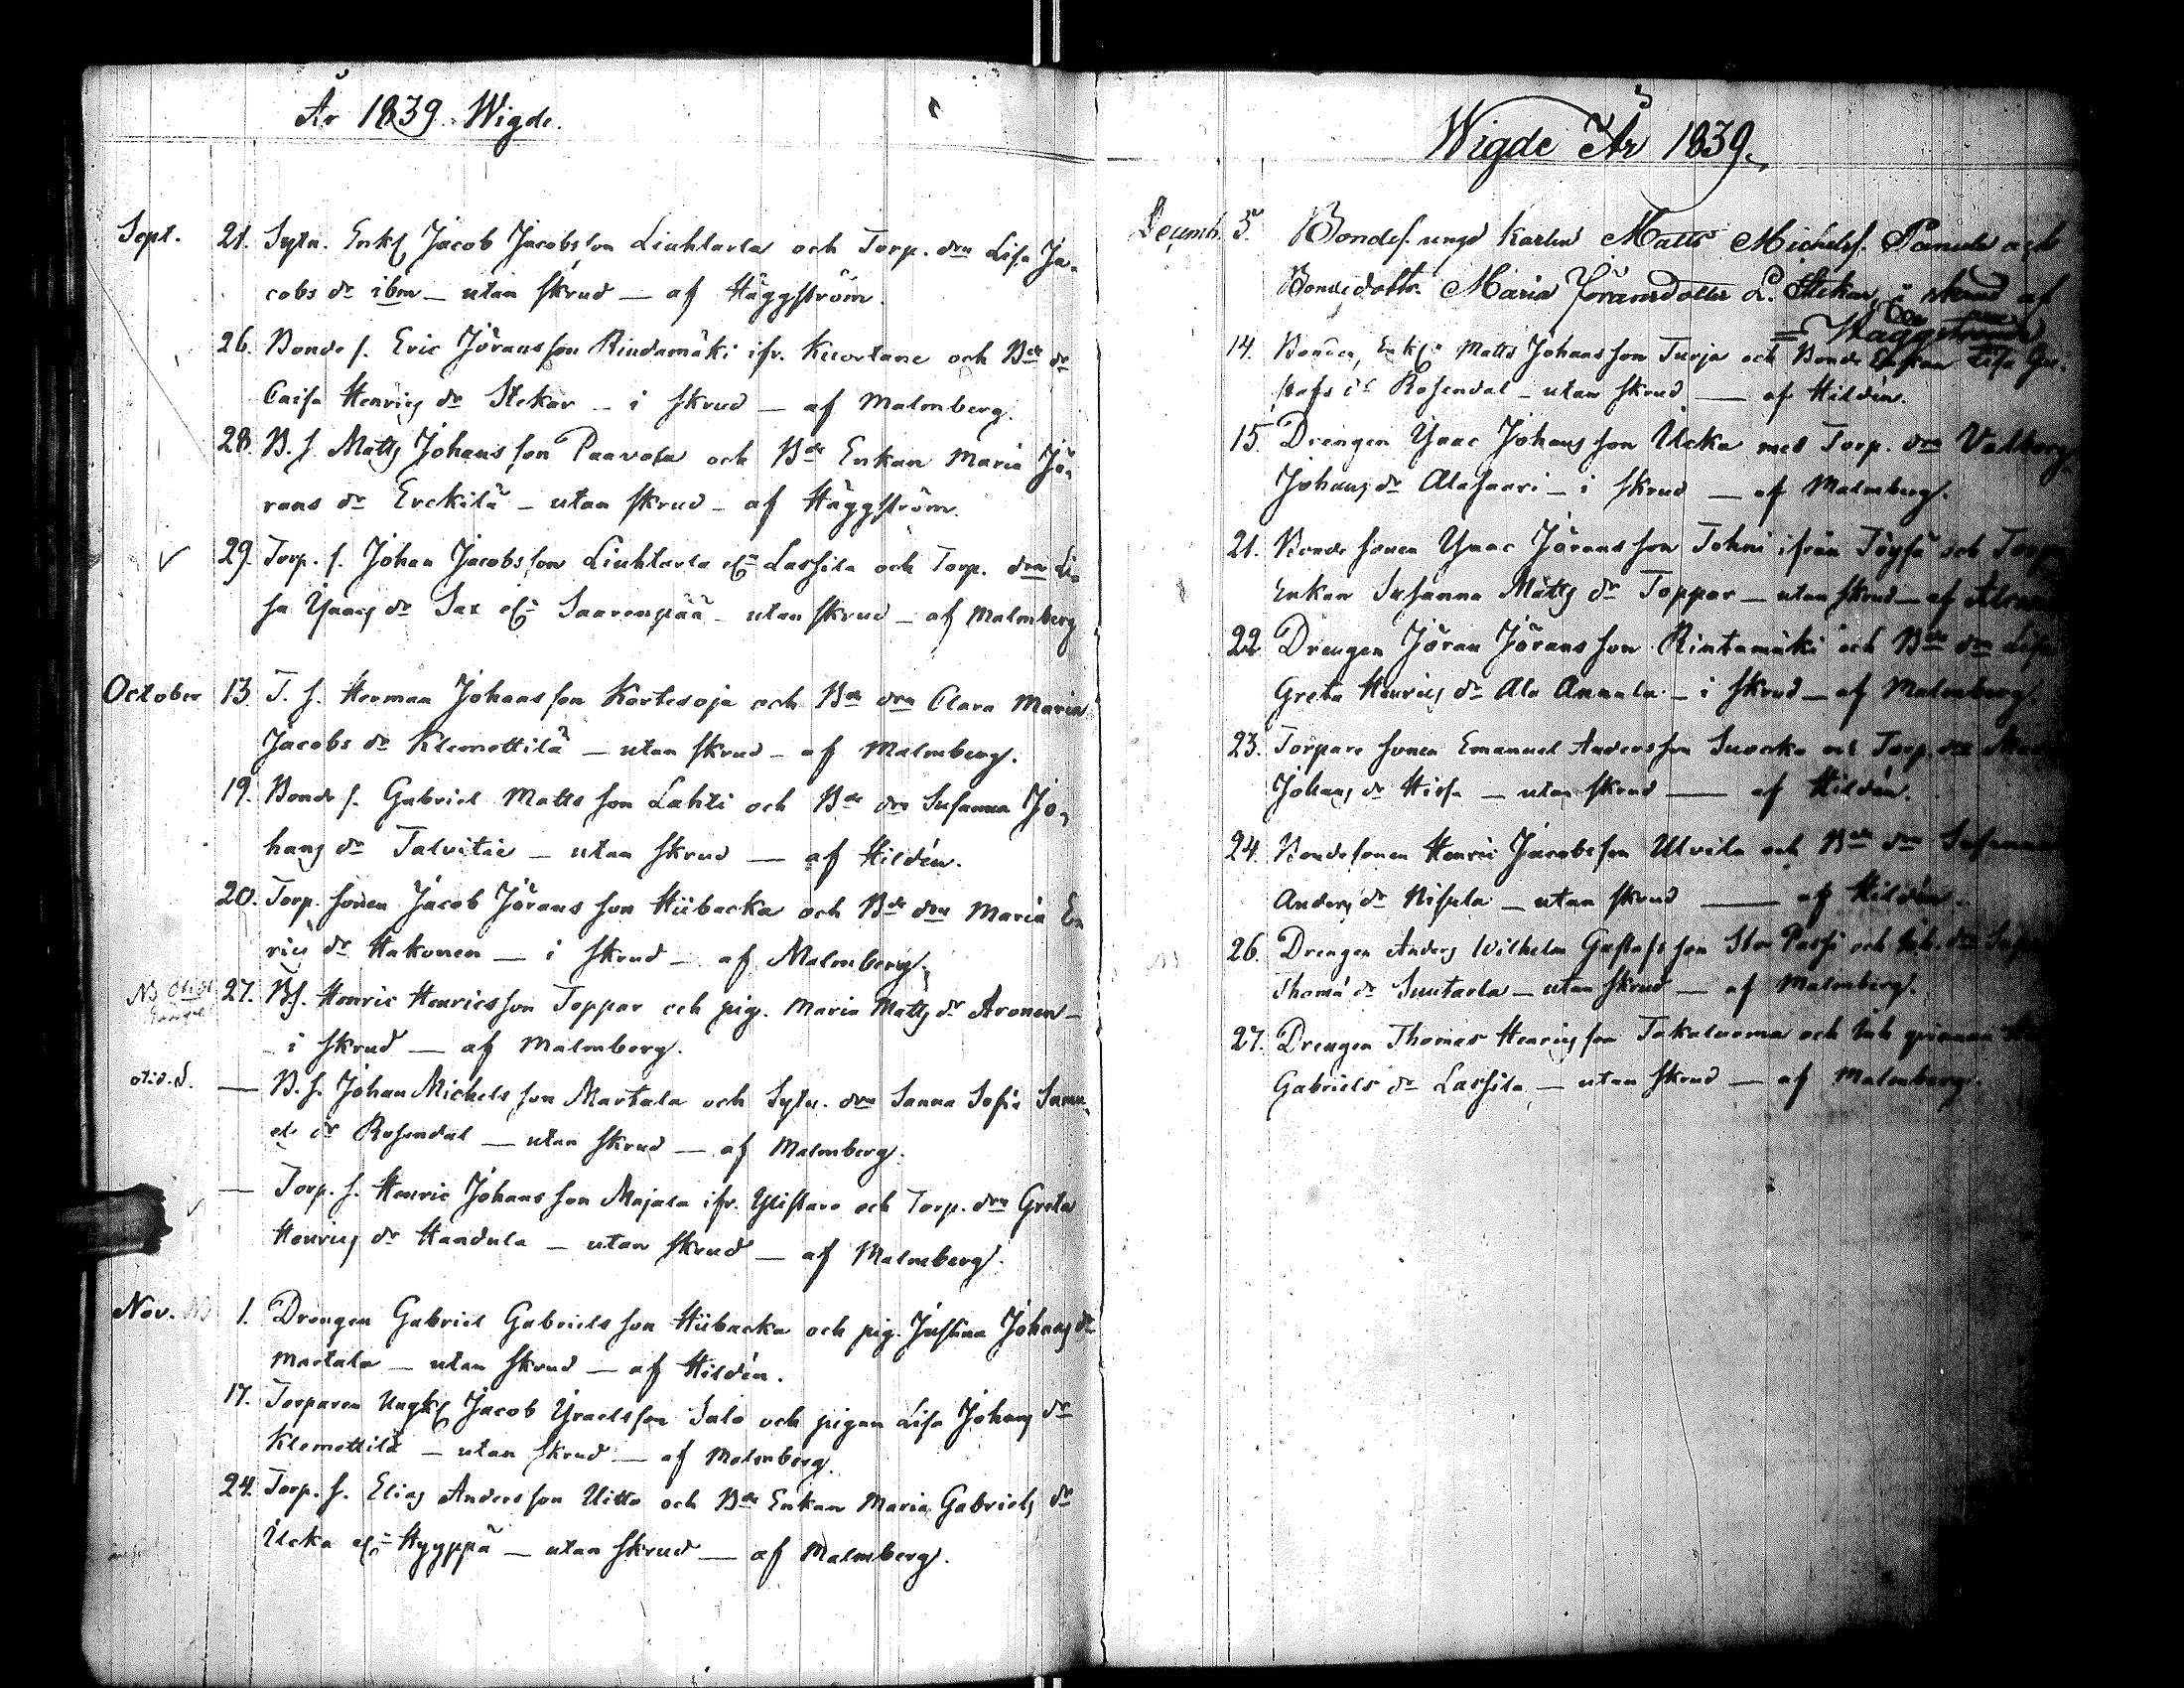 År 1839. Wigde.
Sept. 21. Sytn. Enkl Jacob Jacobsson Liuhtarla och Torp. drn Lisa Ja-
cobs dr ibm – utan skrud – af Häggström.
26. Bonde s. Eric Jöransson Rindamäki ifr. Kuortane och Bde dr
Caisa Henrics dr Stekar – i skrud – af Malmberg.
28. B. s. Matts Johansson Paavola och Bde Enkan Maria Jö-
rans dr Erckilä – utan skrud – af Häggström.
29. Torp. s. Johan Jacobsson Liuhtarla elr Lassila och Torp. drn Li-
sa Ysaacs dr Sax elr Saarenpää – utan skrud – af Malmberg
October 13. T. s. Herman Johansson Kortesoja och Bde drn Clara Maria
Jacobs dr Klemettilä – utan skrud – af Malmberg.
19. Bonde s. Gabriel Mattsson Lahti och Bde drn Susanna Jo-
hans dr Talvitie – utan skrud – af Hildén.
20. Torp. sonen Jacob Jöransson Hiibacka och Bde drn Maria E-
rics dr Hakonen – i skrud – af Malmberg.
NB 27. Bs. Henric Henricsson Toppar och pig. Maria Matts dr Aronen –
– i skrud – af Malmberg.
– B. s. Johan Michelsson Martala och Sytn. drn Sanna Sofia Samu-
els dr Rosendal – utan skrud – af Malmberg.
– Torp. s. Henric Johansson Majala ifr. Ylistaro och Torp. drn Greta
Henrics dr Haudula – utan skrud – af Malmberg.
Nov. 1. Drengen Gabriel Gabrielsson Hiibacka och pig. Justina Johans dr
Martala – utan skrud – af Hildén.
17. Torparen Ungkl Jacob Ysraelsson Salo och pigan Lisa Johans dr
Klemettilä – utan skrud – af Malmberg.
24. Torp. s. Elias Andersson Uitto och Bde Enkan Maria Gabriels dr
Ucka elr Hyyppä – utan skrud – af Malmberg.
Wigde År 1839.
Decemb. 5. Bondes. ungd karlen Matts Michelss. Panula och
Bondedottr. Maria Jöransdotter L. Stekar, i skrud af
= Häggström
14. Bonden, Enkl Matts Johansson Turja och Bonde Enkan Lisa Gu-
stafs dr Rosendal – utan skrud – af Hildén.
15. Drengen Ysaac Johansson Ucka med Torp. drn Valborg
Johans dr Alasaari – i skrud – af Malmberg.
21. Bonde sonen Ysaac Jöransson Tohni ifrån Töysä och Torp
Enkan Susanna Matts dr Toppar – utan skrud – af
22. Drengen Jöran Jöransson Rintamäki och Bde drn Lisa
Greta Henrics dr Ala Annala – i skrud – af Malmberg.
23. Torpare sonen Emanuel Andersson Luocka och Torp. drn
Johans dr Hirsa – utan skrud – af Hildén.
24. Bondesonen Henric Jacobsson Ulvila och Bde drn Susanna
Anders dr Nisula – utan skrud – af Hildén.
26. Drengen Anders Wilhelm Gustafsson Stor Passi och Inh. drn
Thomæ dr Luutarla – utan skrud – af Malmberg.
27. Drengen Thomas Henricsson Takaluoma och Inh qvinnan
Gabriels dr Lassila – utan skrud – af Malmberg.